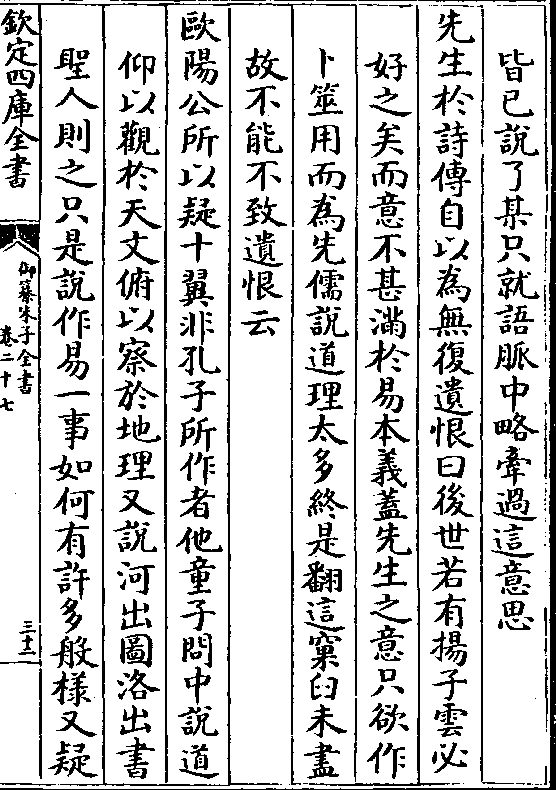 皆已說了某只就語脈中略牽過這意思
先生於詩傳自以為無復遺恨曰後世若有揚子雲必
好之矣而意不甚滿於易本義蓋先生之意只欲作
卜筮用而為先儒說道理太多終是翻這窠臼未盡
故不能不致遺恨云
歐陽公所以疑十翼非孔子所作者他童子問中說道
仰以觀於天文俯以察於地理又說河出圖洛出書
聖人則之只是說作易一事如何有許多般樣又疑
欽定四庫全書
御纂朱子全書
卷二十七
三十二